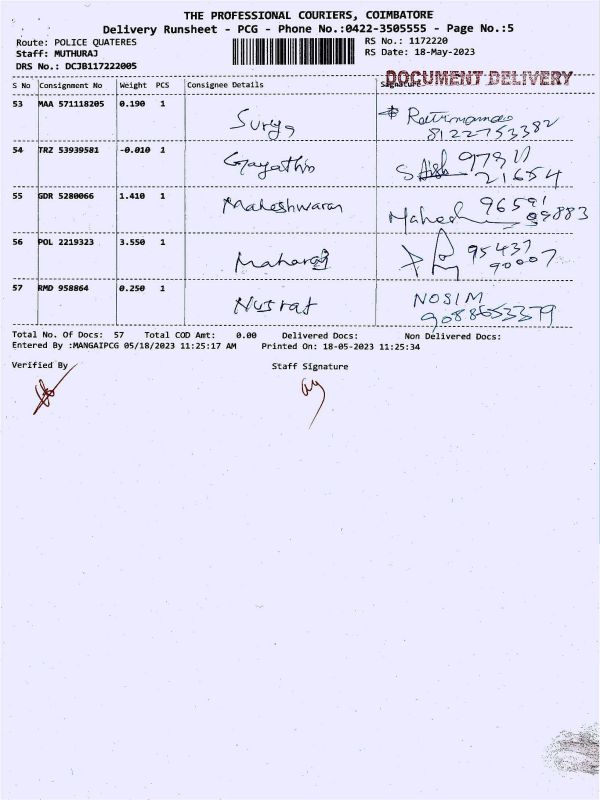 THE PROFESSIONAL COURIERS, COIMBATORE
Delivery Runsheet - PCG - Phone No.:0422-3505555 - Page No.:5
Route: POLICE QUATERES
Staff: MUTHURAJ
DRS No.: DCJB117222005
RS No.: 1172220
RS Date: 18-May-2023
DOCUMENT DELIVERY
S No Consignment No Weight PCS Consignee Details Signature
53 MAA 571118205 0.190 1
Surya
8122753382
54 TRZ 53939581 -0.010 1
Gayathri
21654
55 GDR 5280066 1.410 1
Maheshwaran
Mahesh 96591
56 POL 2219323 3.550 1
Maharaj
95437
90007
57 RMD 958864 0.250 1
Nusrat
NOSIM
9088653379
Total No. Of Docs: 57 Total COD Amt: 0.00 Delivered Docs: Non Delivered Docs:
Entered By :MANGAIPCG 05/18/2023 11:25:17 AM Printed On: 18-05-2023 11:25:34
Verified By Staff Signature